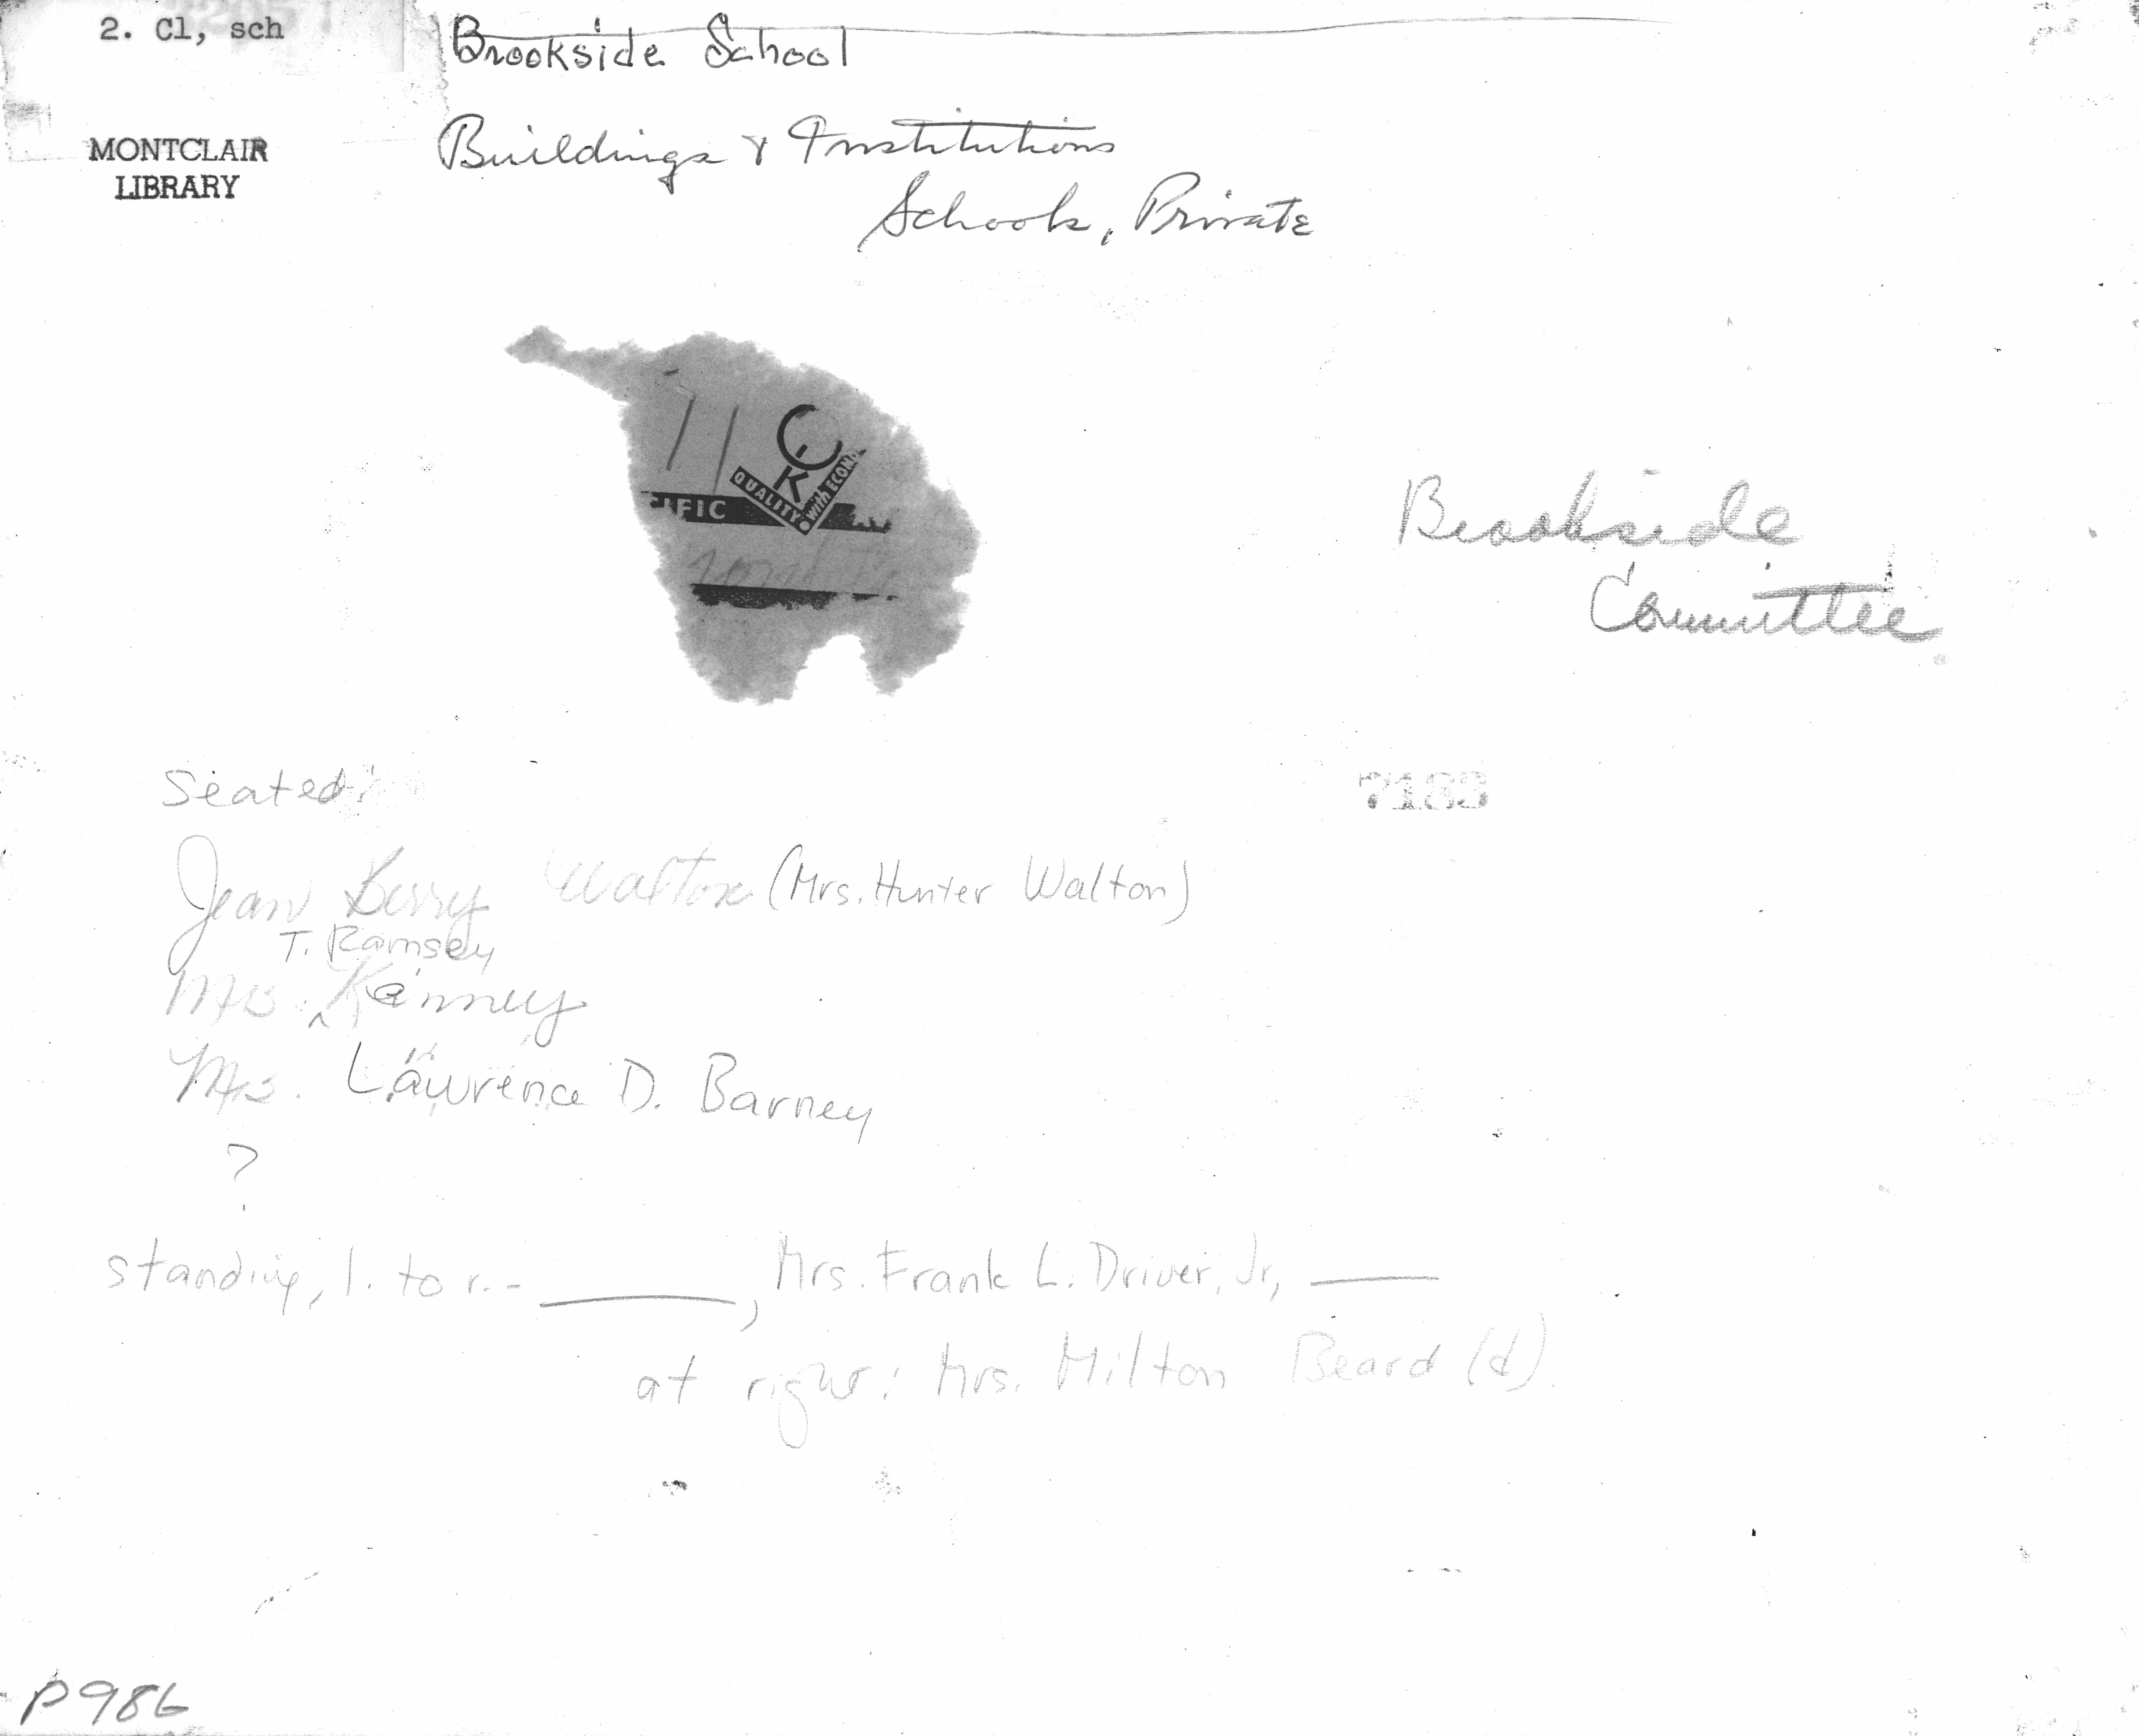 2. Cl, sch
Brookside School
MONTCLAIR
LIBRARY
Buildings & Institutions
Schools, Private
QUALITY with ECON
FIC
Brookside
Committee
7183
Seated:
Jean Berry Walton (Mrs. Hunter Walton)
T. Ramsey
Mrs. ^ Kenney
Mrs. Lawrence D. Barney
?
standing, l. to r. - ____, Mrs. Frank L. Driver, Jr, ____
at right: Mrs. Milton Beard (d)
P986